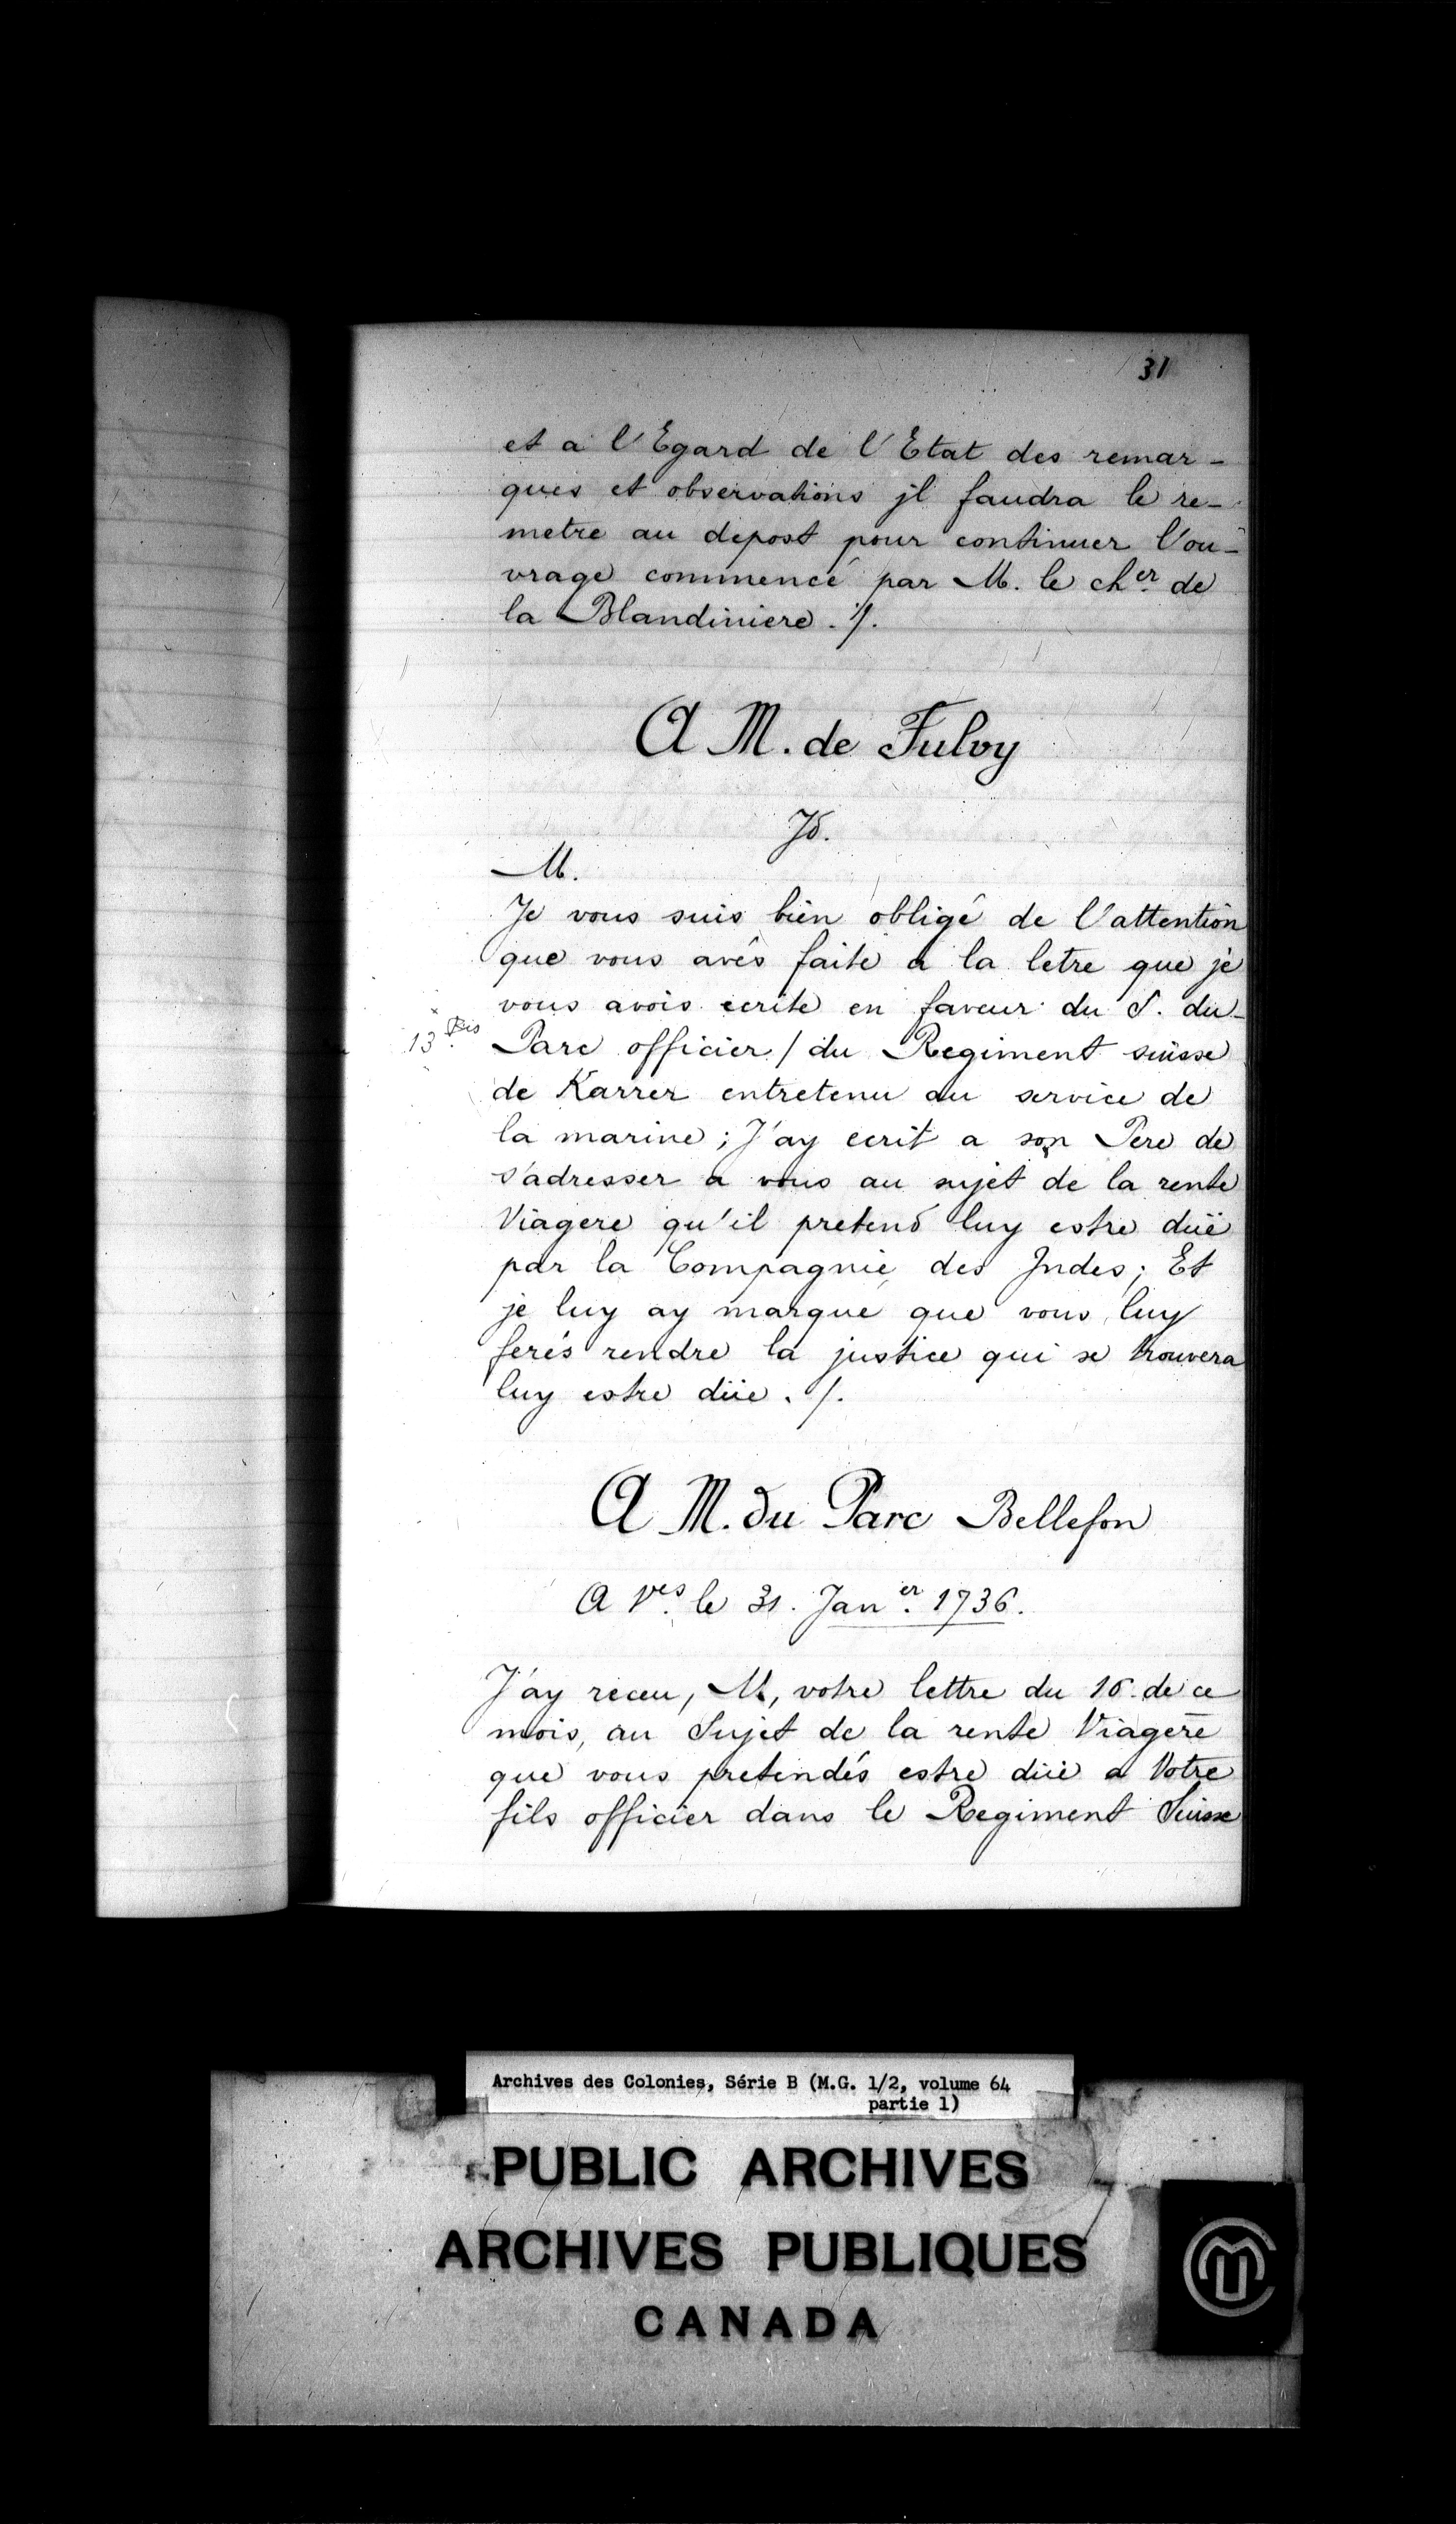 31
et a l'Egard de l'Etat des remar-
ques et observations jl faudra le re-
metre au depost pour continuer l'ou-
vrage commencé par M. le cher. de
la Blandiniere ./.
A M. de Fulvy
Jd.
M.
Je vous suis bien obligé de l'attention
que vous avés faite a la letre que je
vous avois ecrite en faveur du S. du-
13 bis
Parc officier / du Regiment suisse
de Karrer entretenu au service de
la marine; J'ay ecrit a son Pere de
s'adresser a vous au sujet de la rente
Viagere qu'il pretend luy estre düe
par la Compagnie des Jndes; Et
je luy ay marqué que vous luy
ferés rendre la justice qui se trouvera
luy estre düe ./.
A M. du Parc Bellefon
A Ves. le 31. Janer. 1736.
J'ay receu, M, votre lettre du 16. de ce
mois, au Sujet de la rente Viagere
que vous pretendés estre düe a Votre
fils officier dans le Regiment Suisse
Archives des Colonies, Série B (M.G. 1/2, volume 64
partie 1)
PUBLIC ARCHIVES
ARCHIVES PUBLIQUES
CANADA